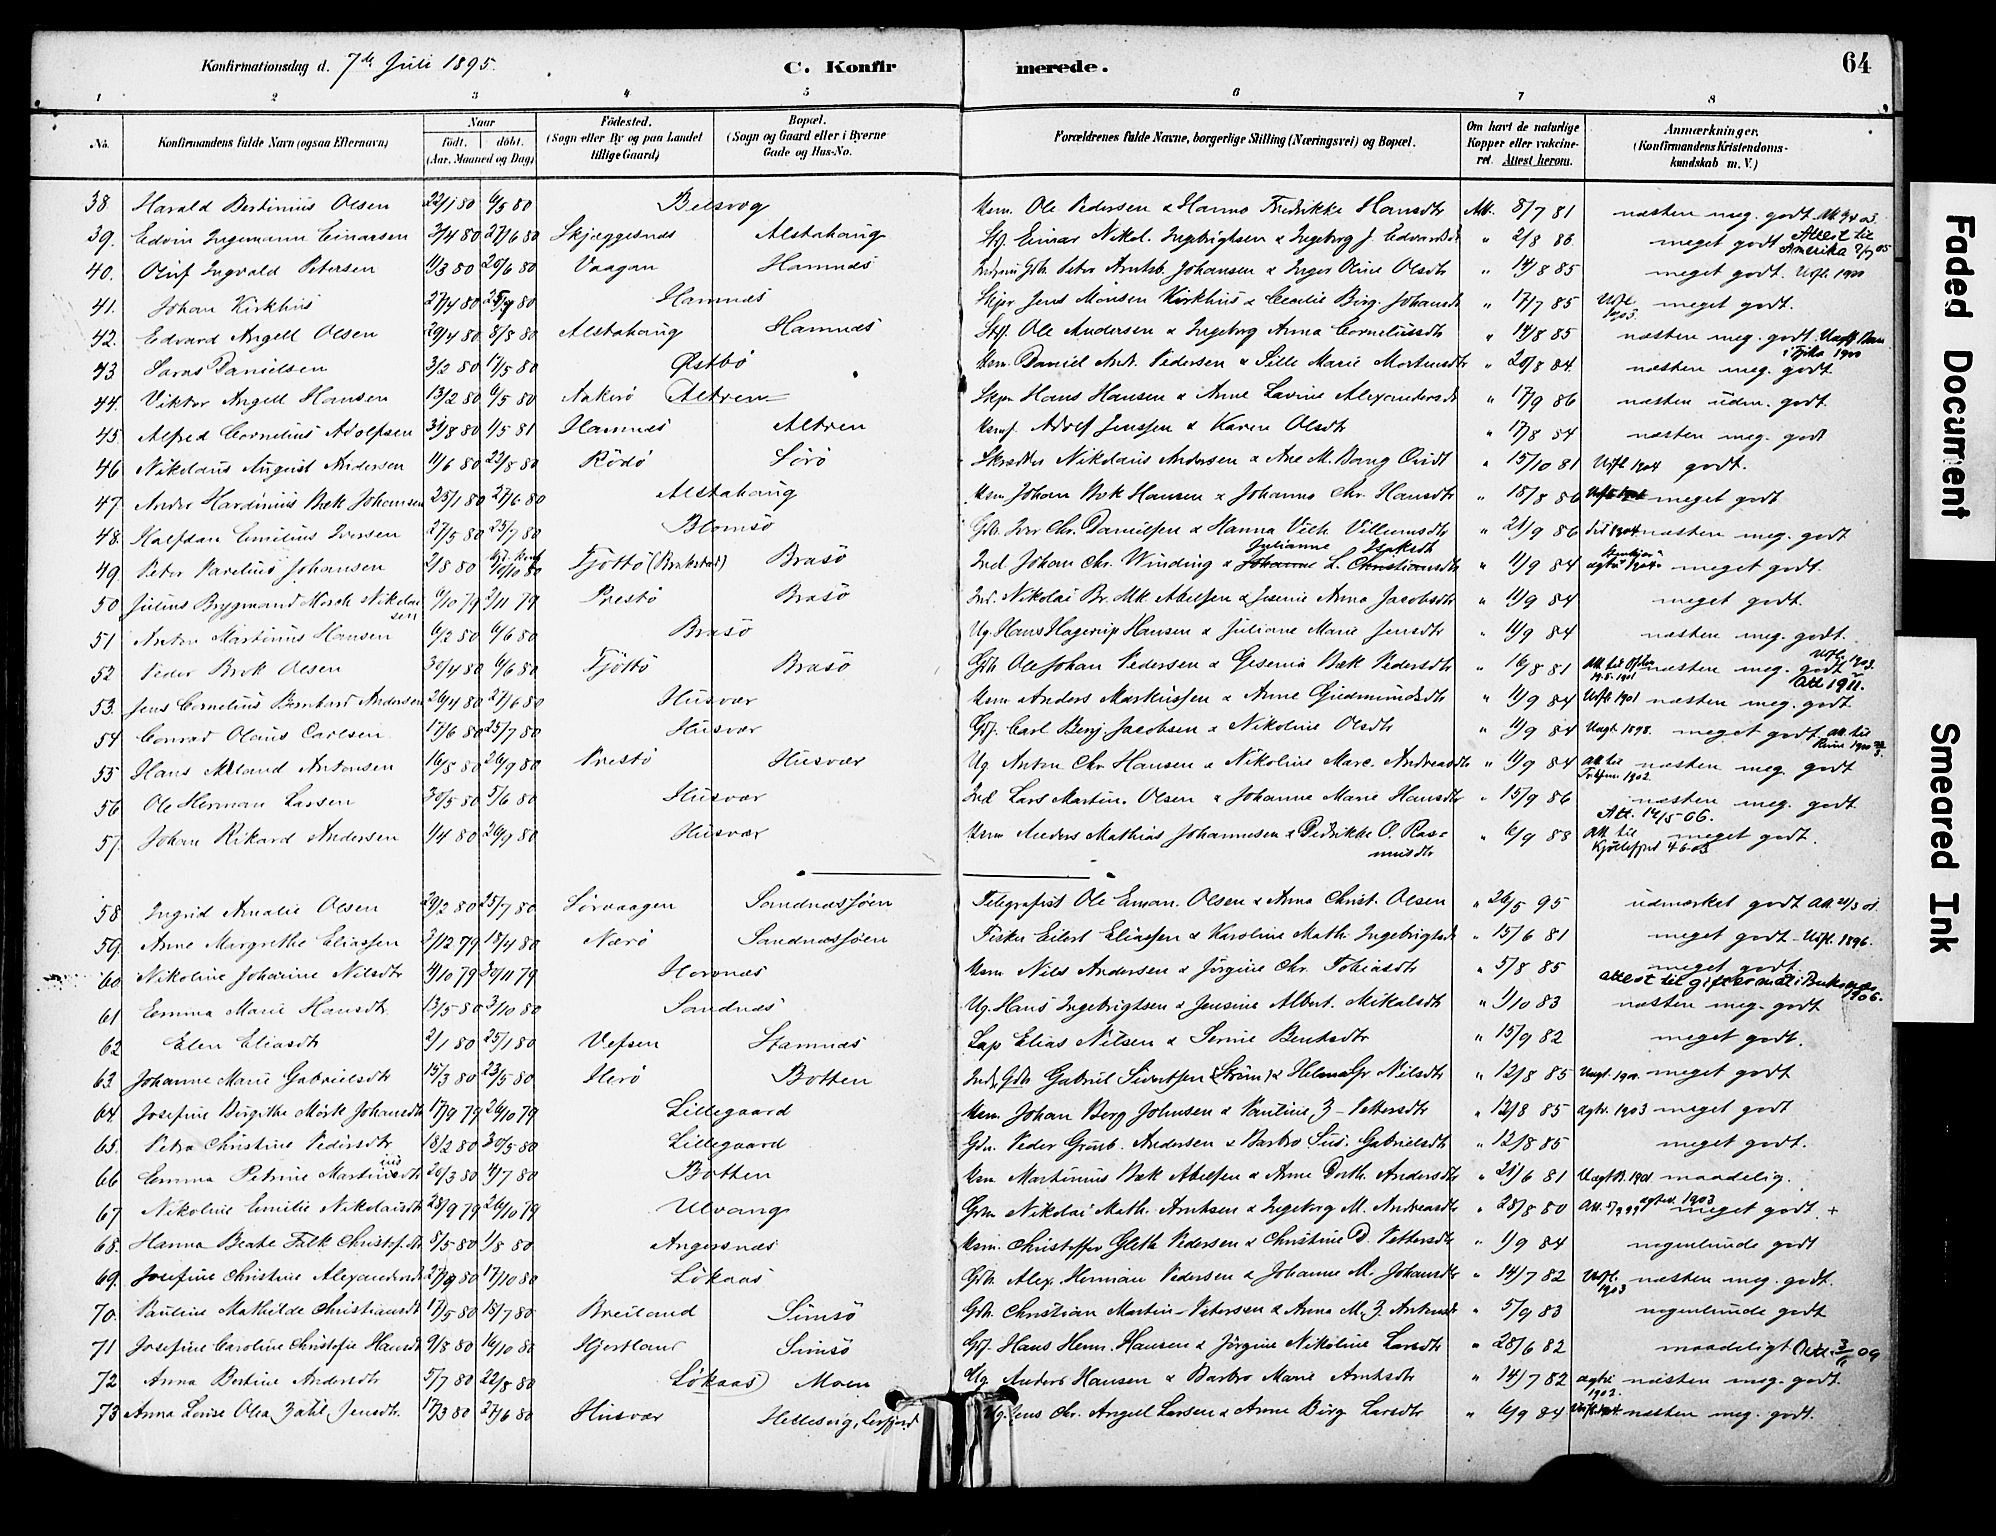 Konfirmationsdag d. 7de Juli 1895. C. Konfirmerede. 64
1 2 3 4 5 6 7 8
No. Konfirmandens fulde Navn (ogsaa Efternavn) Naar født. døbt. (Aar, Maaned og Dag) Fødested. (Sogn eller By og paa Landet tillige Gaard) Bopæl. (Sogn og Gaard eller i Byerne Gade og Hus-No. Forældrenes fulde Navne, borgerlige Stilling (Næringsvei) og Bopæl. Om havt de naturlige Kopper eller vakcineret. Attest herom. Anmærkninger. (Konfirmandens Kristendomskundskab m. V.)
38 Harald Bertinius Olsen 22/1 80 6/5 80 Belsvog Usm. Ole Pedersen & Hanna Fredrikke Hansdtr Att. 8/7 81 næsten meg. godt
39. Edvin Ingemann Einarsen 2/4 80 27/6 80 Skjeggesnes Alstahaug Stf. Einar Nikol. Ingebrigtsen & Ingeborg J. Edvardsd " 2/8 86 meget godt Attest til Amerika
40. Oluf Ingvald Petersen 11/3 80 20/6 80 Vaagan Hamnes Peter Arntsb. Johansen & Inger Oline Olsdtr " 14/8 85 meget godt. Utfl. 1900
41. Johan Kirkhus 27/4 80 80 Hamnes Skpr Jens Monsen Kirkhus & Cecilie Birg. Johansd " 17/7 85 Utfl. 1903 meget godt.
42. Edvard Angell Olsen 29/4 80 8/8 80 Alstahaug Hamnes Stf. Ole Andersen & Ingeborg Anna Corneliusdtr " 14/8 85 næsten meg. godt
43 Danielsen 3/2 80 17/5 80 Østbø Usm. Daniel And. Pedersen & Sille Marie Mortensdtr " 20/8 84. næsten meg. godt
44. Viktor Angell Hansen 13/2 80 6/5 80 Aakerø Altren Skpr Hans Hansen & Anne Lavine Alexandersd " 17/9 86 næsten udm. godt.
45. Alfred Cornelius Adolfsen 31/8 80 1/5 81 Hamnes Altren Adolf Jenssen & Karen Olsdtr " 17/8 84 næsten meg. godt
46 Nikolaus August Andersen 11/6 80 22/8 80 Rödö Sörö Skrædder Nikolaus Andersen & Ane M. Bang " 15/10 81 Utfl 1904 godt.
47. Hardinius Bæk Johansen 25/1 80 27/6 80 Alstahaug Usm Johan Bæk Hansen & Johanna Chr. Hansdtr " 18/8 86 meget godt
48. Halfdan Emilius Iversen 27/5 80 25/7 80 Blomsö Gdr. Iver Chr. Danielsen & Hanna Vilh. Villumsdtr " 21/9 86 næsten meg. godt
49 Peter Parelius Johansen 2/8 80 10/10 80 Tjöttö Brasö Ind. Johan Chr. Winding & Julianne " 11/9 84 1904. meget godt.
50 Julius Brygmand Nikolaisen 6/10 79 2/11 79 Prestö Brasö Ind. Nikolai Br. Mk. Abelsen & Jesenie Anna Jacobsdtr " 11/9 84 meget godt.
51 Anton Martinus Hansen 6/2 80 6/6 80 Brasö Ug. Hans Hagerup Hansen & Juliane Marie Jensdtr " 11/9 84 næsten meg. godt.
52 Peder Brok Olsen 30/4 80 6/6 80 Tjöttö Brasö Gdr Ole Johan Pedersen & Gesenia Bæk Pedersdtr " 16/8 81 næsten meg. godt Utfl. 1903. Att 1911.
53. Jens Cornelius Bernhard Andersen 26/4 80 27/6 80 Husvær Usm Anders Markussen & Anne Gudmundsdtr " 11/9 84 Utfl 1901 næsten meg. godt
54 Conrad Olaus Carlsen 17/6 80 25/7 80 Husvær Gdf. Carl Benj. Jacobsen & Nikoline Olsdtr " 11/9 84 1898. meget godt. Att. til
55 Hans Antonsen 16/8 80 26/9 80 Prestö Husvær Ug Anton Chr. Hansen & Nikoline Marc. Andreasdtr " 11/9 84 Att. til 1902. næsten meg. godt
56 Ole Herman Larsen 30/5 80 5/6 80 Husvær Ind Lars Martin. Olsen & Johanne Marie Hansdtr " 15/9 86 næsten meg. godt.
57. Johan Rikard Andersen 1/4 80 26/9 80 Husvær Usm Anders Mathias Johannesen & Fredrikke O. Rasmusdtr " 6/9 88 Att. 14/5-06. Att til Kjöllefjord 4-6-03 meget godt.
58. Ingrid Amalie Olsen 29/2 80 25/7 80 Sörvaagen Sandnessjöen Telegrafist Ole Eman. Olsen & Anna Christ. Olsen " 26/5 95 udmærket godt
59. Anne Margrethe Eliassen 2/12 79 18/4 80 Nærö Sandnessjöen Fisker Eilert Eliassen & Karoline Math. Ingebrigtsd " 15/6 81 meget godt. Utfl. 1896.
60 Nikoline Johanne Nilsdtr 4/10 79 30/11 79 Hornnes Usm Nils Andersen & Jörgine Chr. Tobiasdtr " 5/8 85 meget godt. attest til giftermål i 1906.
61 Emma Marie Hansdtr. 13/5 80 3/10 80 Sandnes Ug. Hans Ingebrigtsen & Jensine Albert. Mikalsdtr " 1/10 83 næsten meg. godt
62 Elen Eliasdtr 2/1 80 25/1 80 Vefsen Stamnes Lap Elias Nilsen & Sernie Bentsdtr " 15/9 82 meget godt.
63. Johanne Marie Gabrielsdtr 15/3 80 23/5 80 Herö Botten Gdr Gabriel Sivertsen (Ström) & Helena Nilsdtr " 12/8 85 meget godt
64. Josefine Birgithe Mörk Johansdtr 17/9 79 26/10 79 Lillegaard Usm. Johan Berg Johnsen & Pauline Z. Pettersdtr " 12/8 85 1903 meget godt
65. Petra Christine Pedersdtr 18/2 80 30/5 80 Lillegaard Gdr. Peder Grönb. Andersen & Barbro Sus. Gabrielsdtr " 12/8 85 meget godt.
66 Emma Petrine Martinusdtr 26/3 80 4/7 80 Botten Usm. Martinius Bæk Abelsen & Anne Doth. Andersdtr " 21/6 81 1901 maadelig.
67 Nikoline Emilie Nikolaisdtr 28/9 79 26/10 79 Ulvang Gdr. Nikolai Math. Arntsen & Ingeborg M. Andreasdtr " 28/8 80 1903 meget godt. +
68. Hanna Beate Falk Christofsdtr 8/5 80 1/8 80 Angersnes Usm. Christoffer Gleth Pedersen & Christine D. Pettersdtr " 1/9 84 nogenlunde godt
69. Josefine Christine Alexandersd 80 17/10 80 Lökaas Gdr. Alex. Herman Pedersen & Johanne M. Johansdtr " 14/7 82 Utfl. 1903 næsten meg. godt.
70. Pauline Mathilde Christiansdt 17/5 80 18/7 80 Breiland Simsö Gdr. Christian Martin Petersen & Anna M. Z. Antonsd " 5/9 83 nogenlunde godt
71 Josefine Caroline Christofie Hansdt 9/8 80 16/10 80 Hjortland Simsö Gdf. Hans Henr. Hansen & Jörgine Nikoline Larsdtr " 28/6 82 maadeligt Att. 3/11 09
72 Anna Bertine Andersdtr 5/7 80 22/8 80 Lökaas Moen Ug. Anders Hansen & Barbro Marie Arntsdtr " 14/7 82 1902. næsten meg. godt.
73 Anna Lovise Olea Zahl Jensdtr. 17/3 80 27/6 80 Husvær Hellesvig, Leirfjord Ug. Jens Chr. Angell Larsen & Anne Birg. Larsdtr " 6/9 84 næsten meg. godt.
Faded Document
Smeared Ink